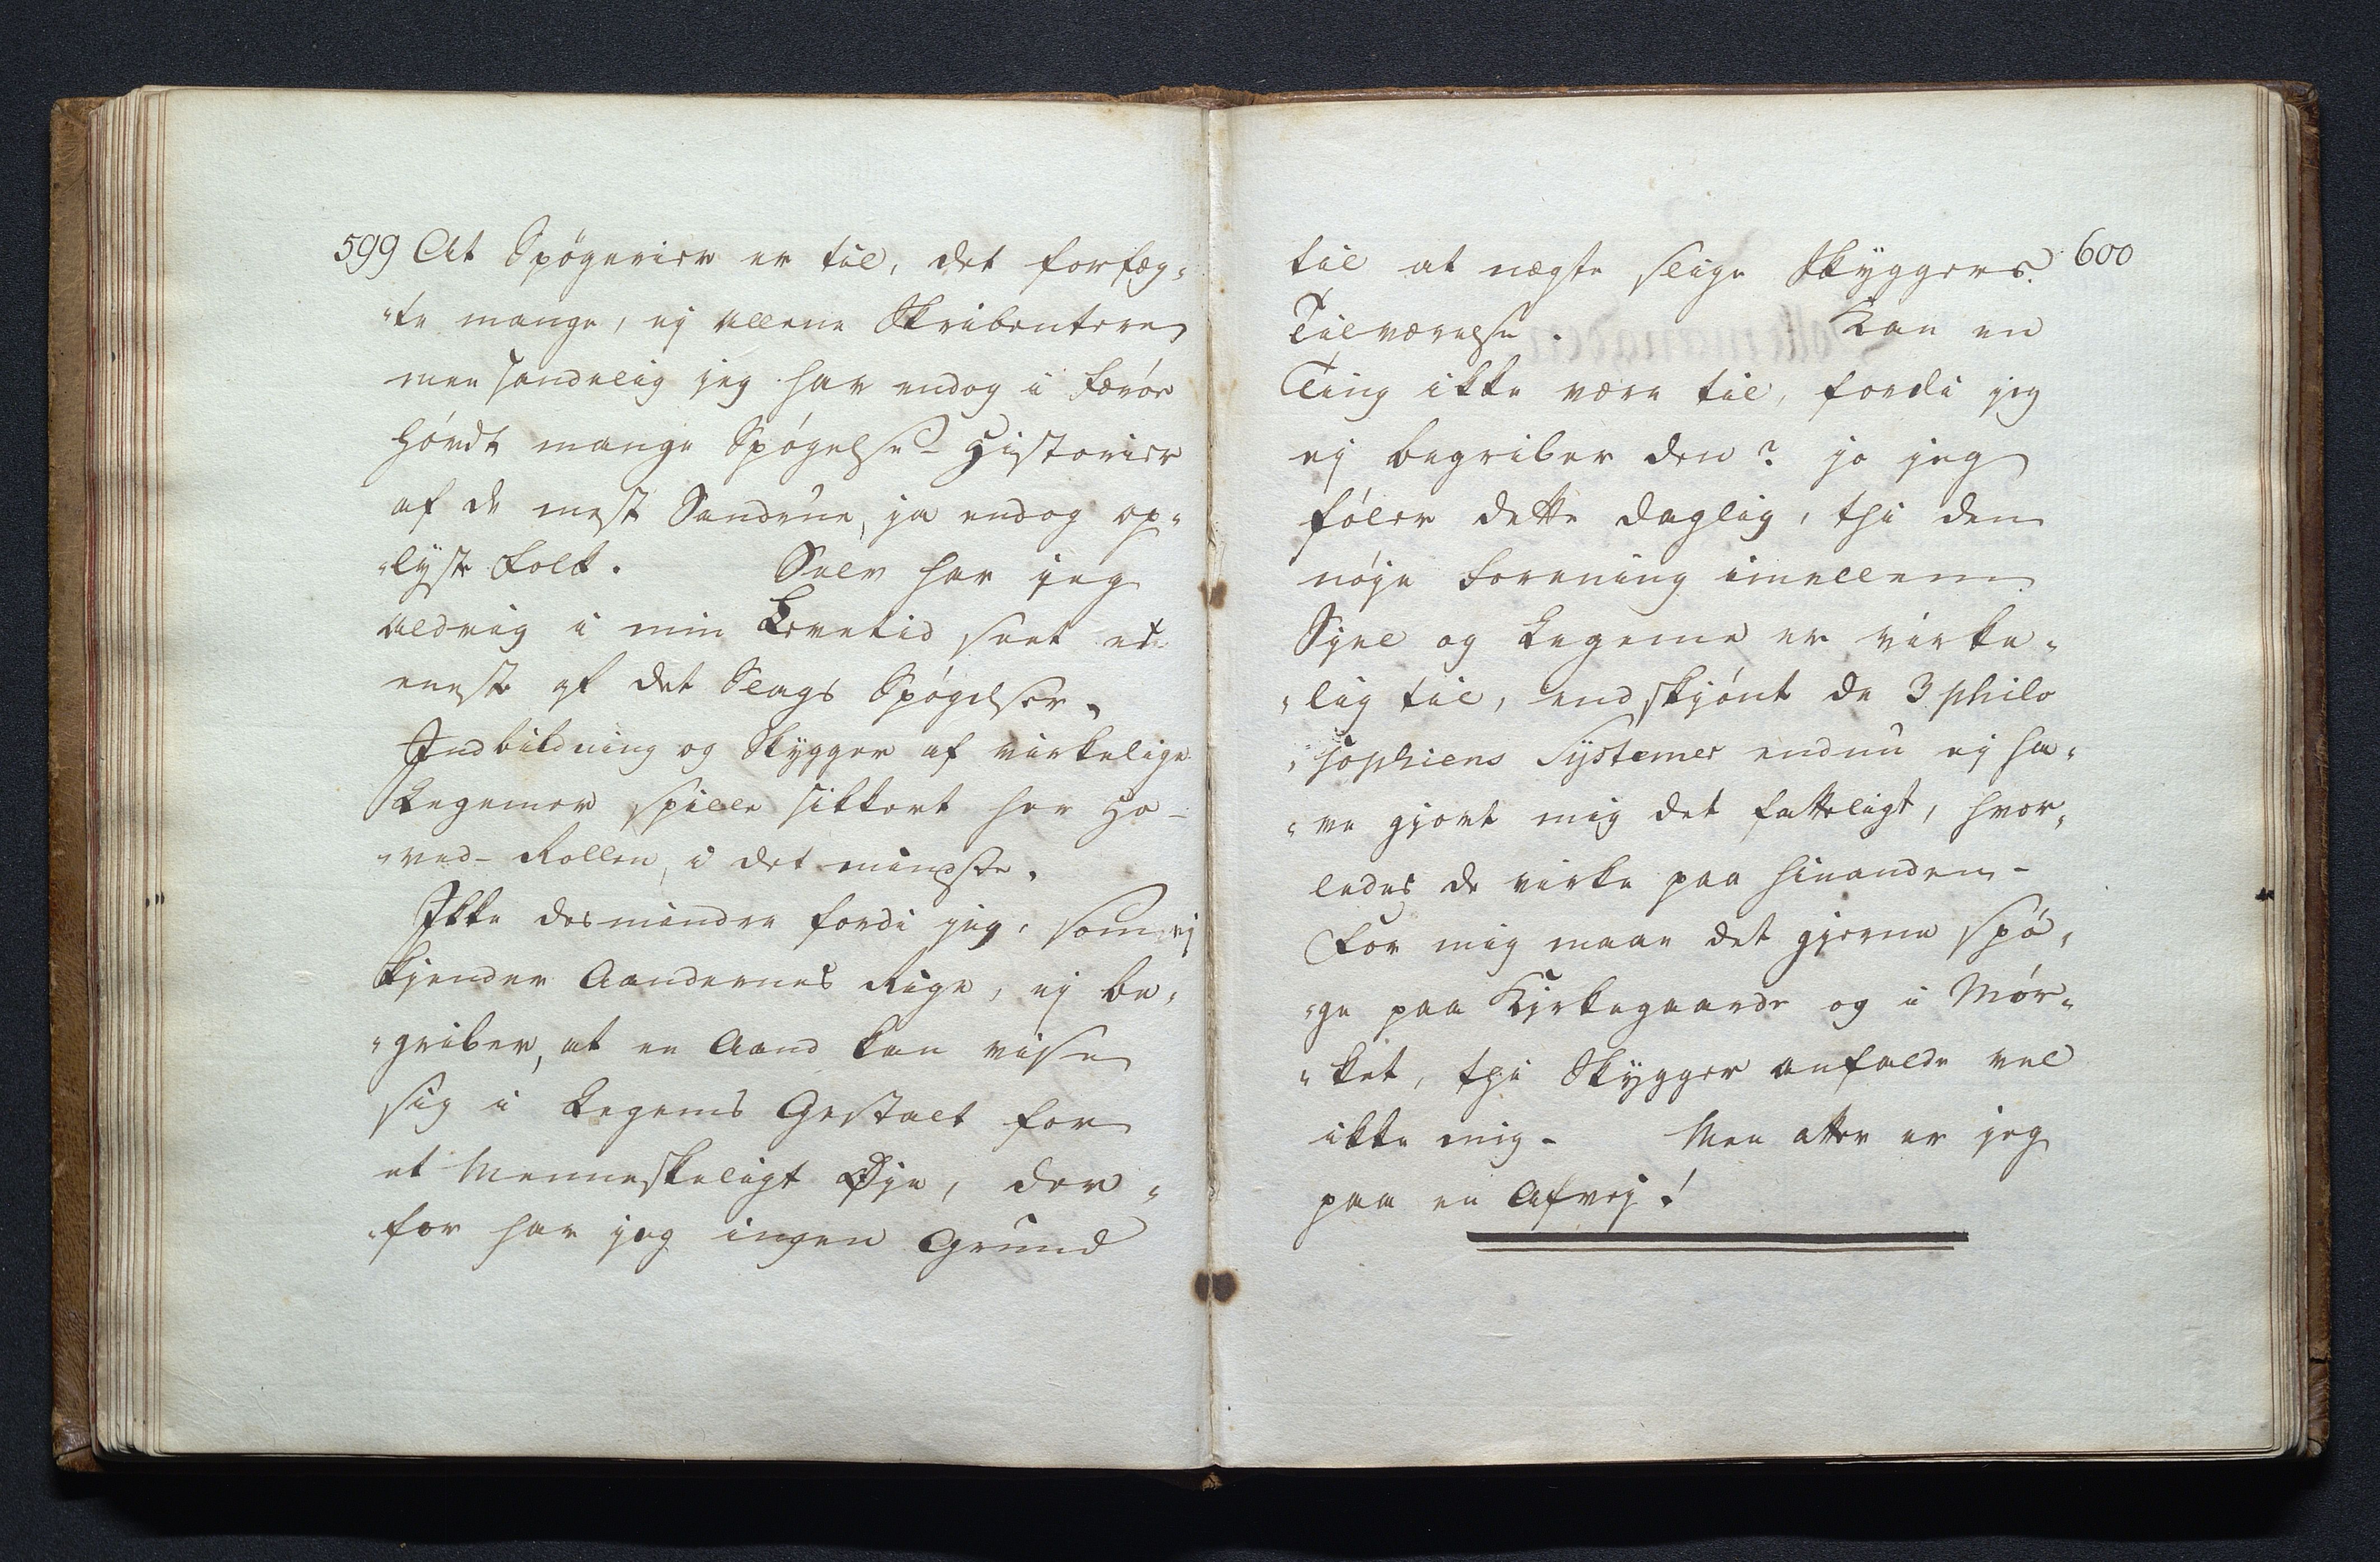 599 At Spögerier er til, det forfæg„
„te mange, ej allene Skribentere,
men sandelig jeg har endog i Færöe
hórdt mange Spógelse-Historier
af de mest Sandrue, ja endog op„
„lyste Folk. Selv har jeg
aldrig i min Levetid seet et
eneste af det Slags Spógelser.
Indbildning og Skygger af virkelige
Legemer spille sikkert her Ho-
„ved-Rollen, i det mindste.
Ikke desmindre fordi jeg, som ej
kjender Aandernes Rige, ej be„
„griber, at en Aand kan vise
sig i Legems Gestalt for
et Menneskeligt Øje, der„
„for har jeg ingen Grund
600
til at nægte slige Skyggers
Tilværelse. Kan en
Ting ikke være til, fordi jeg
ej begriber den? jo jeg
fóler dette daglig, thi den
nóje Forening imellem
Sjel og Legeme er virke„
„lig til, endskjónt de 3 philo
„sophiens Systemer endnu ej ha„
„ve gjort mig det fatteligt, hvor„
ledes de virke paa hinanden-
For mig maae det gjerne spó„
„ge paa Kirkegaarde og i Mór„
„ket, thi Skygger anfalde vel
ikke mig- Men atter er jeg
paa en Afvej!